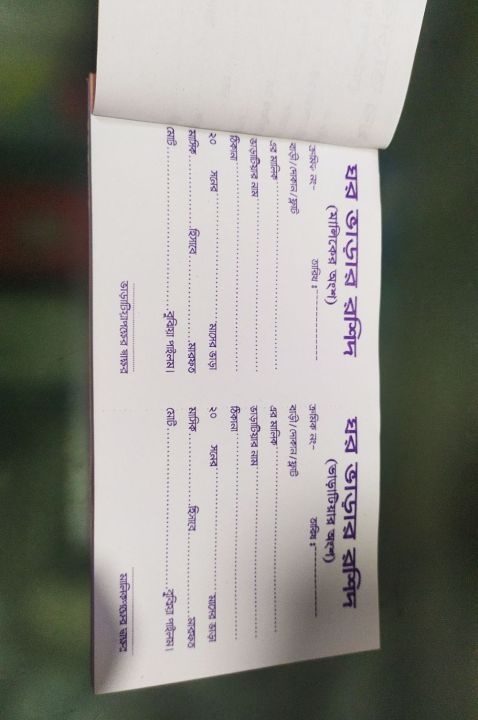 ঘর ভাড়ার রশিদ
(মালিকের অংশ)
ক্রমিক নং-
তারিখ :
বাড়ী/দোকান/ফ্ল্যাট
এর মালিক
ভাড়াটিয়ার নাম
ঠিকানা
২০ সনের মাসের ভাড়া
মাসিক হিসাবে মারফত
মোট বুঝিয়া পাইলাম।
ভাড়াটিয়াপক্ষের স্বাক্ষর
ঘর ভাড়ার রশিদ
(ভাড়াটিয়ার অংশ)
ক্রমিক নং-
তারিখ :
বাড়ী/দোকান/ফ্ল্যাট
এর মালিক
ভাড়াটিয়ার নাম
ঠিকানা
২০ সনের মাসের ভাড়া
মাসিক হিসাবে মারফত
মোট বুঝিয়া পাইলাম।
মালিকপক্ষের স্বাক্ষর